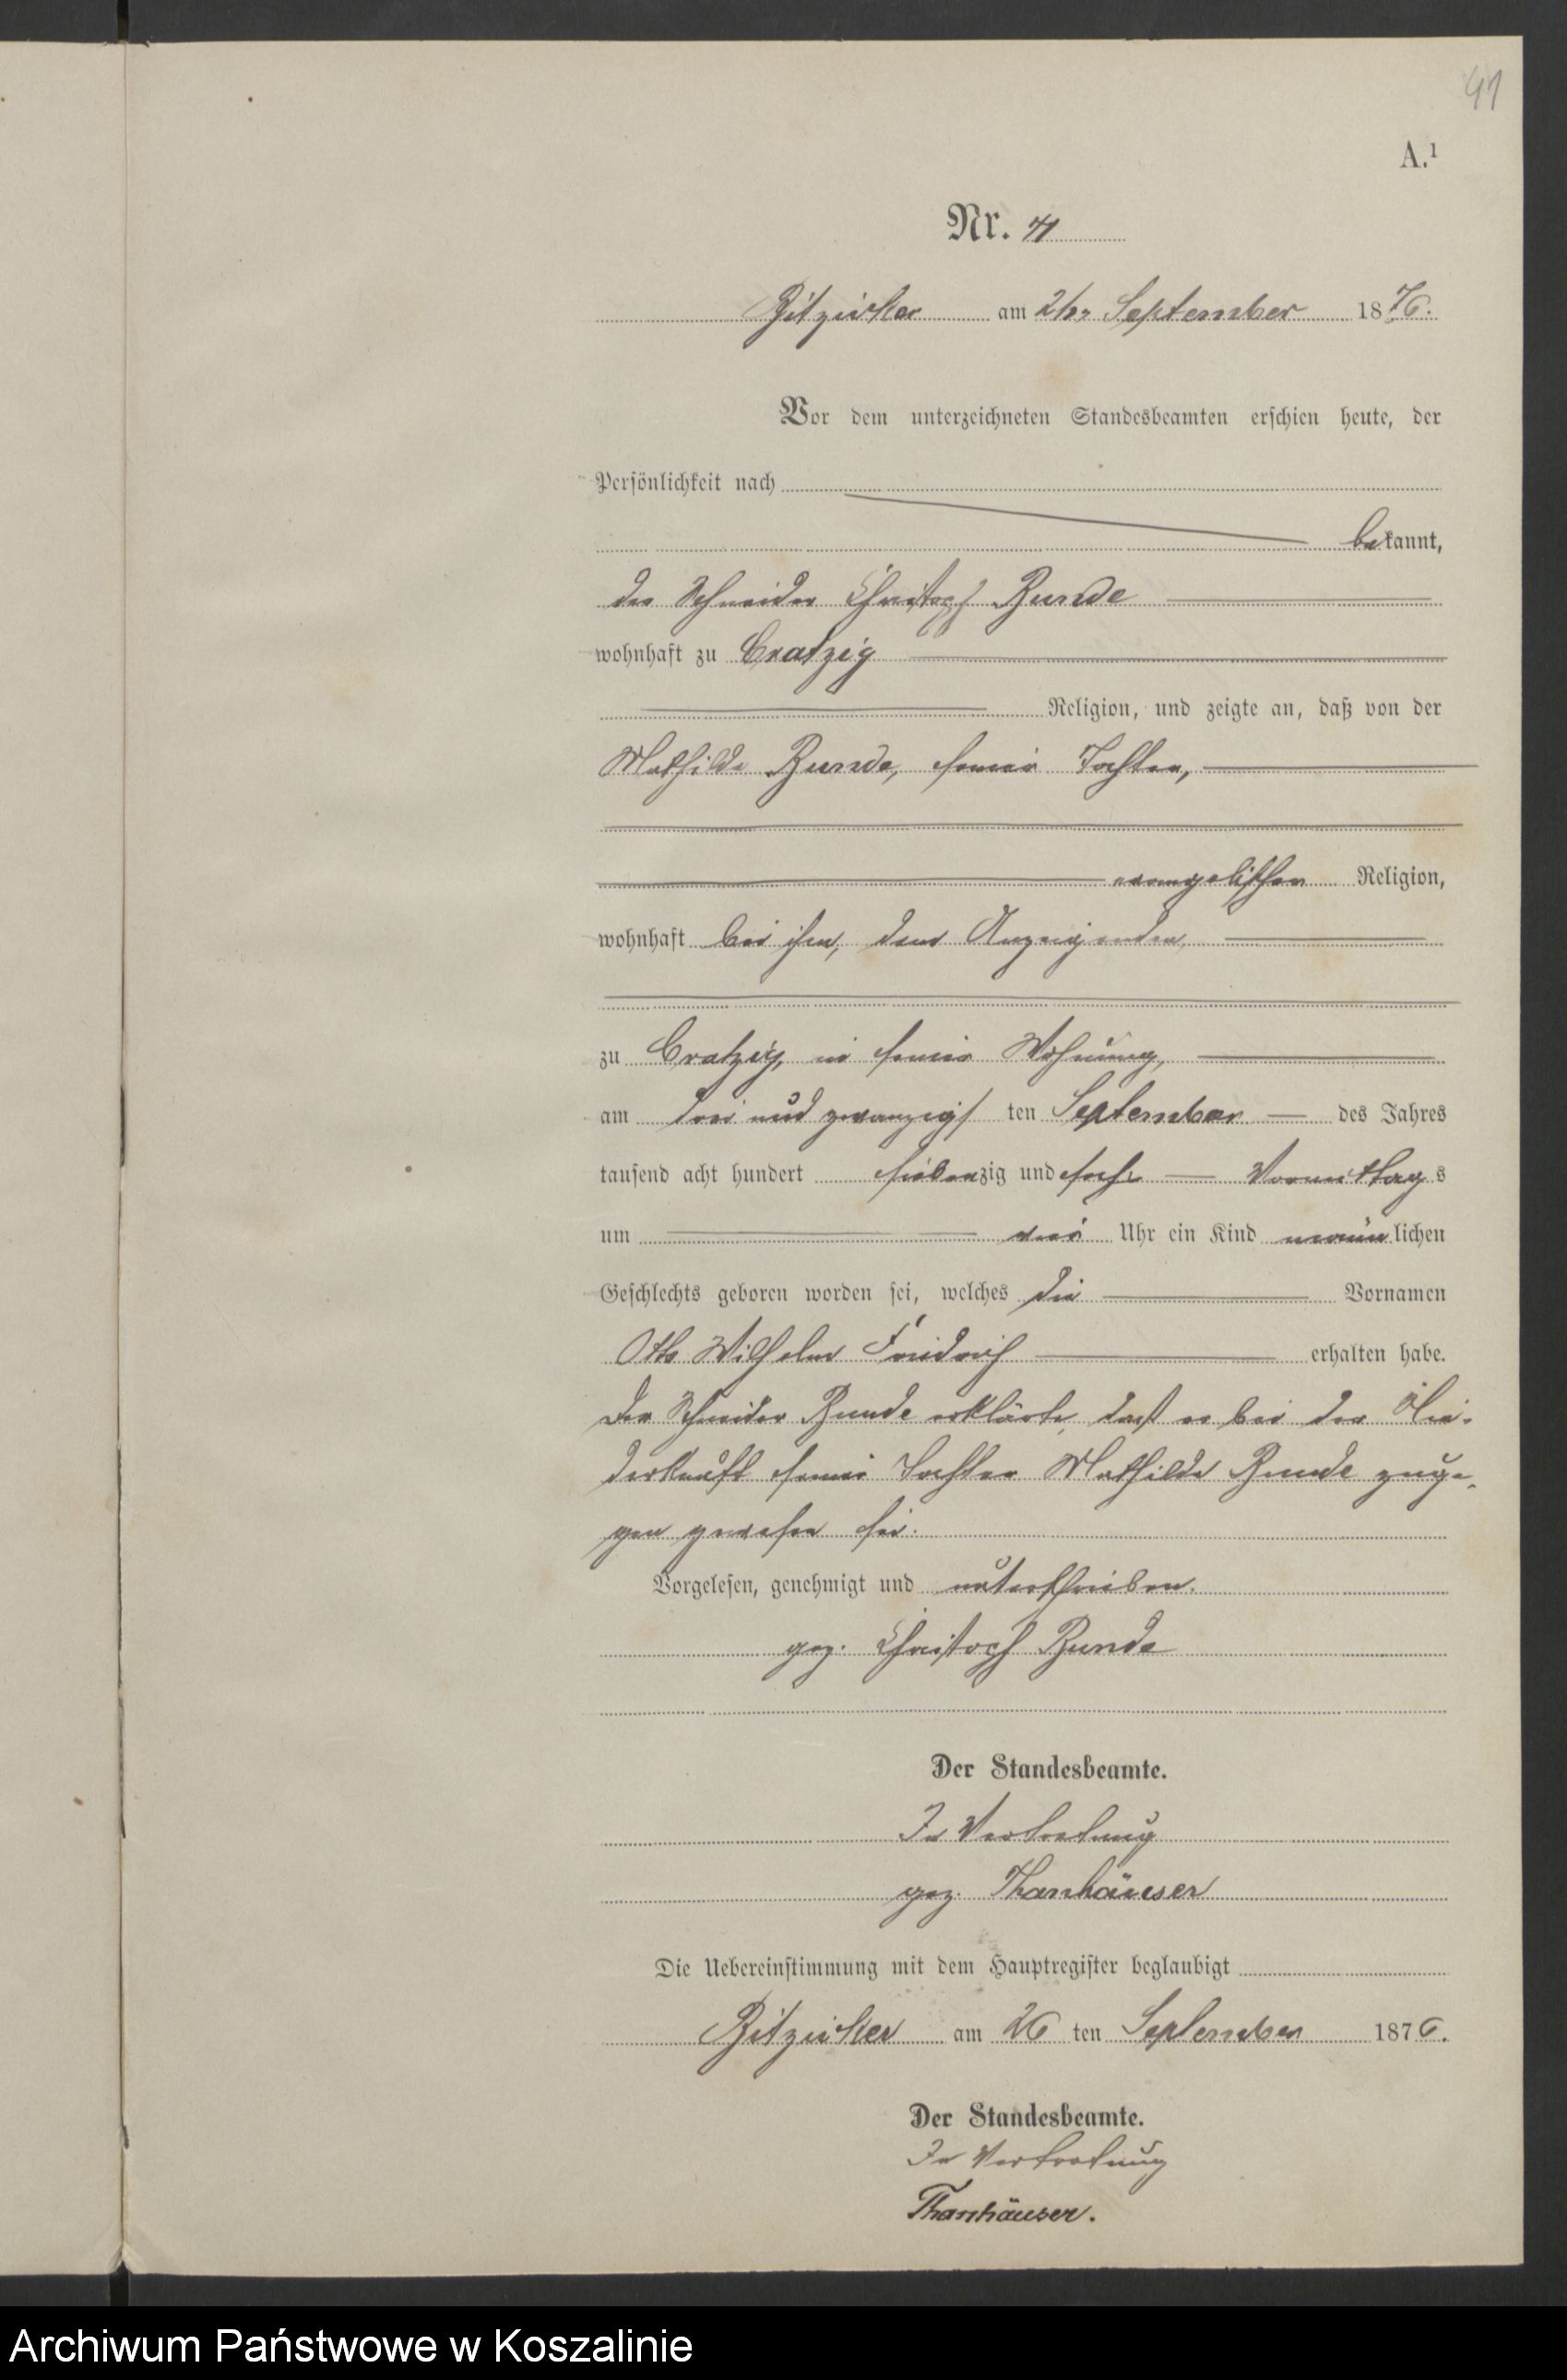 41
A.¹
Nr. 41
Bitziker am 26. September 1876.
Vor dem unterzeichneten Standesbeamten erschien heute, der
Persönlichkeit nach
bekannt,
der Schneider Christoph Bunde
wohnhaft zu Cratzig
Religion, und zeigte an, daß von der
Mathilde Bunde, seiner Tochter,
evangelischer Religion,
wohnhaft bei ihm, dem Anzeigenden,
zu Cratzig, in seiner Wohnung,
am drei und zwanzigsten September des Jahres
tausend acht hundert siebenzig und sechs Vormittags
um drei Uhr ein Kind männlichen
Geschlechts geboren worden sei, welches die Vornamen
Otto Wilhelm Friedrich erhalten habe.
Der Schneider Bunde erklärte, daß er bei der Nie-
derkunft seiner Tochter Mathilde Bunde zuge-
gen gewesen sei.
Vorgelesen, genehmigt und unterschrieben.
gez. Christoph Bunde
Der Standesbeamte.
In Vertretung
gez. Thanhäuser
Die Uebereinstimmung mit dem Hauptregister beglaubigt
Bitziker am 26 ten September 1876.
Der Standesbeamte.
In Vertretung
Thanhäuser.
Archiwum Państwowe w Koszalinie